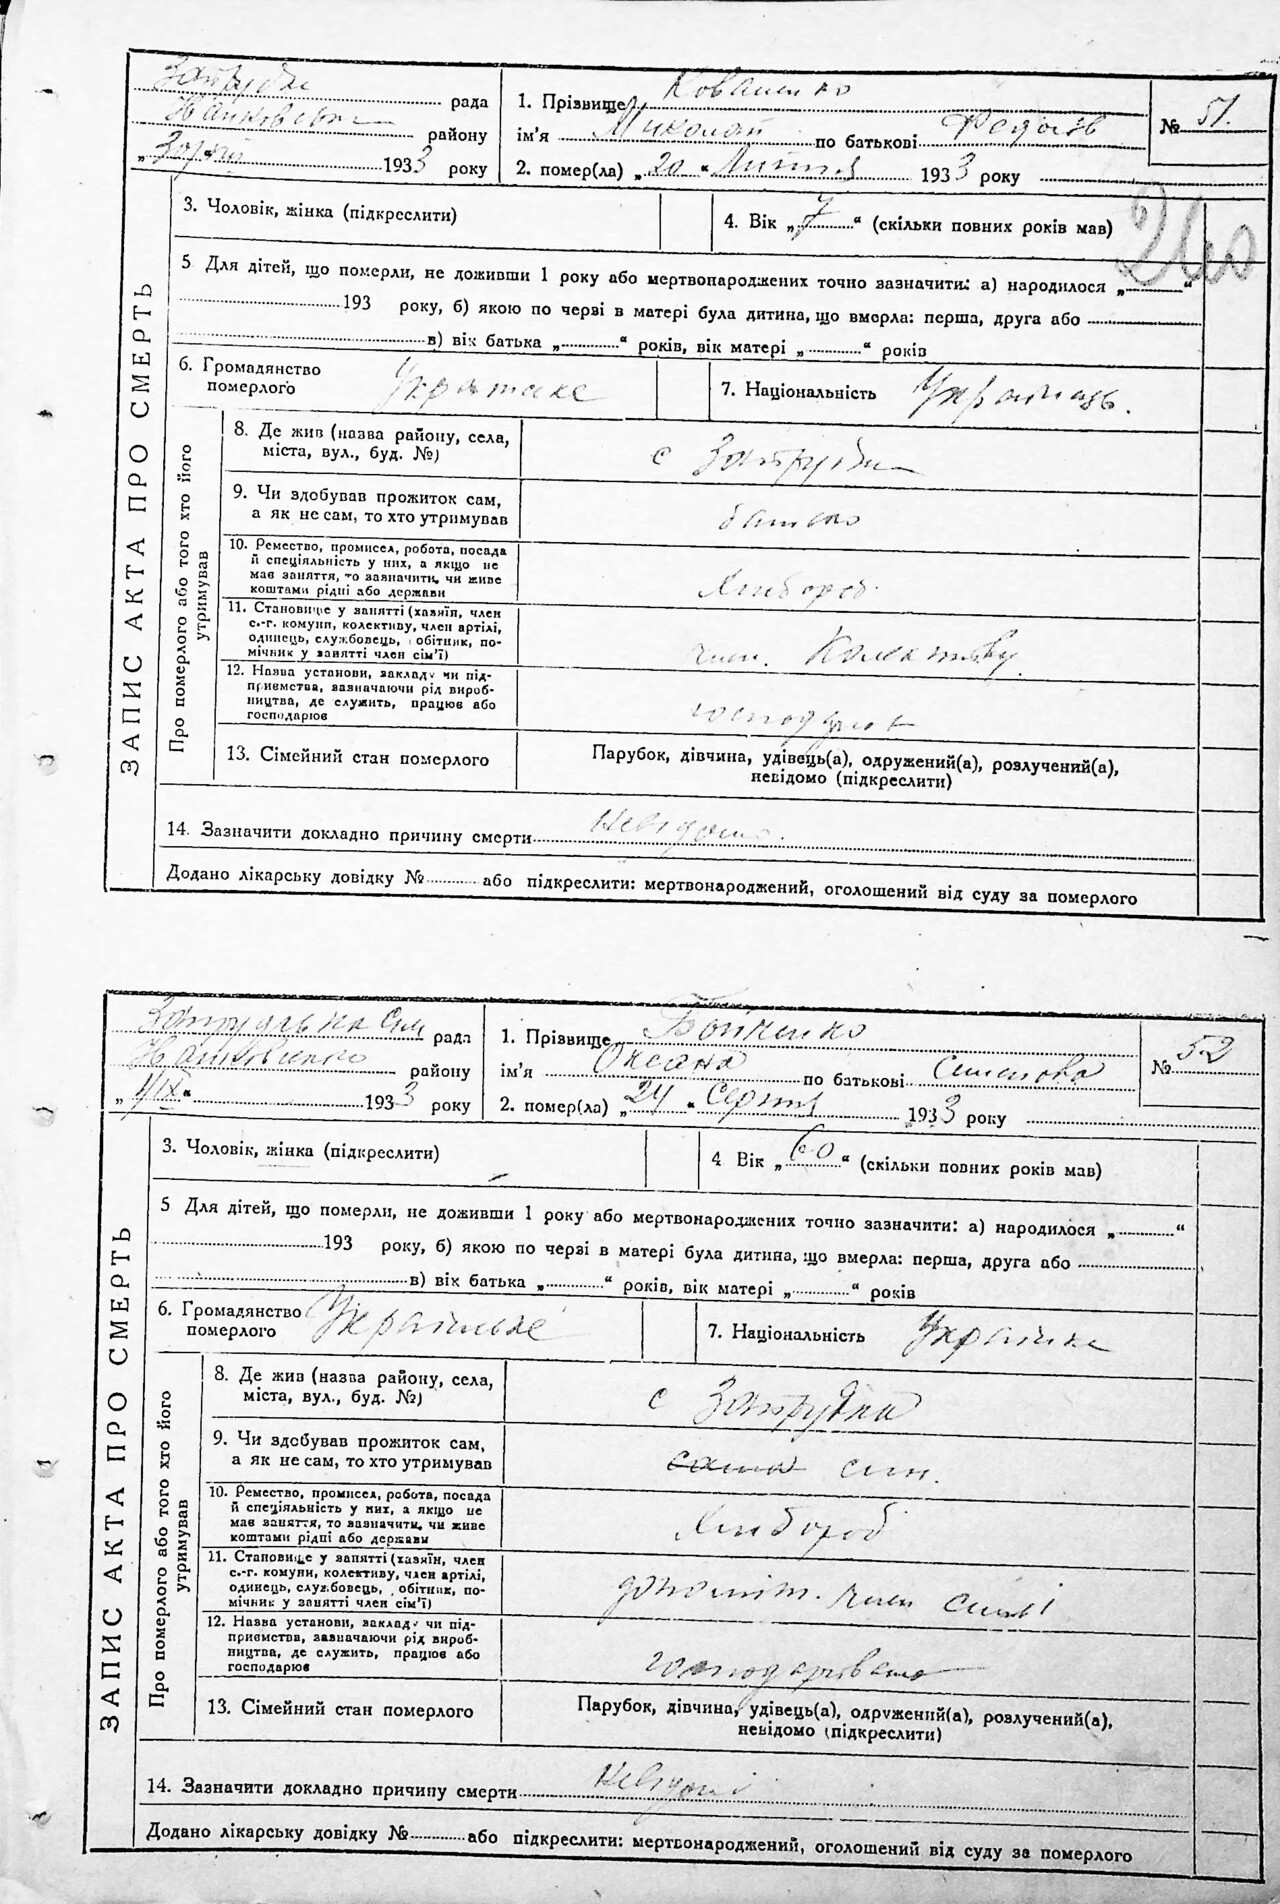 рада
району
1933 року
1. Прізвище Коваленко
ім'я Миколай по батькові Федоів
2. помер(ла) „20“ Липня 1933 року
№ 51.
3. Чоловік, жінка (підкреслити)
4. Вік „7“ (скільки повних років мав)
260
5 Для дітей, що померли, не доживши 1 року або мертвонароджених точно зазначити: а) народилося „ “
193 року, б) якою по черзі в матері була дитина, що вмерла: перша, друга або
в) вік батька „ “ років, вік матері „ “ років
6. Громадянство
померлого
7. Національність Українець.
ЗАПИС АКТА ПРО СМЕРТЬ
Про померлого або того хто його
утримував
8. Де жив (назва району, села,
міста, вул., буд. №)
с
9. Чи здобував прожиток сам,
а як не сам, то хто утримував
батько
10. Ремество, промисел, робота, посада
й спеціяльність у них, а якщо не
має заняття, то зазначити, чи живе
коштами рідні або держави
Хлібороб.
11. Становище у занятті (хазяїн, член
с.-г. комуни, колективу, член артілі,
одинець, службовець, обітник, по-
мічник у занятті член сім'ї)
член. Колективу
12. Назва установи, закладу чи під-
приємства, зазначаючи рід вироб-
ництва, де служить, працює або
господарює
13. Сімейний стан померлого
Парубок, дівчина, удівець(а), одружений(а), розлучений(а),
невідомо (підкреслити)
14. Зазначити докладно причину смерти Невідомо.
Додано лікарську довідку № або підкреслити: мертвонароджений, оголошений від суду за померлого
рада
району
„1/IX“ 1933 року
1. Прізвище Бойченко
ім'я Оксана по батькові Семенова
2. помер(ла) „24“ Серпня 1933 року
№ 52
3. Чоловік, жінка (підкреслити)
4 Вік „60“ (скільки повних років мав)
5 Для дітей, що померли, не доживши 1 року або мертвонароджених точно зазначити: а) народилося „ “
193 року, б) якою по черзі в матері була дитина, що вмерла: перша, друга або
в) вік батька „ “ років, вік матері „ “ років
6. Громадянство
померлого
Українське
7. Національність Українка
ЗАПИС АКТА ПРО СМЕРТЬ
Про померлого або того хто його
утримував
8. Де жив (назва району, села,
міста, вул., буд. №)
с Затрудка
9. Чи здобував прожиток сам,
а як не сам, то хто утримував
сама син.
10. Ремество, промисел, робота, посада
й спеціяльність у них, а якщо не
має заняття, то зазначити, чи живе
коштами рідні або держави
Хлібороб
11. Становище у занятті (хазяїн, член
с.-г. комуни, колективу, член артілі,
одинець, службовець, обітник, по-
мічник у занятті член сім'ї)
член сімьі
12. Назва установи, закладу чи під-
приємства, зазначаючи рід вироб-
ництва, де служить, працює або
господарює
господарювала
13. Сімейний стан померлого
Парубок, дівчина, удівець(а), одружений(а), розлучений(а),
невідомо (підкреслити)
14. Зазначити докладно причину смерти
Додано лікарську довідку № або підкреслити: мертвонароджений, оголошений від суду за померлого